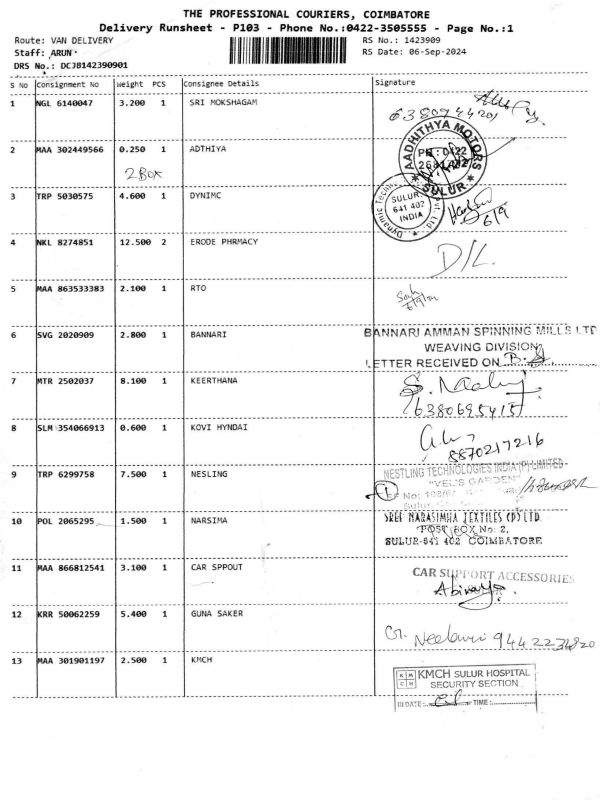 THE PROFESSIONAL COURIERS, COIMBATORE
Delivery Runsheet - P103 - Phone No.:0422-3505555 - Page No.:1
Route: VAN DELIVERY
RS No.: 1423909
Staff: ARUN
RS Date: 06-Sep-2024
DRS No.: DCJB142390901
S No Consignment No Weight PCS Consignee Details Signature
1 NGL 6140047 3.200 1 SRI MOKSHAGAM
6380944201
2 MAA 302449566 0.250 1 ADTHIYA
AADHITHYA MOTORS
PH : 0422
SULUR
2 BOX
3 TRP 5030575 4.600 1 DYNIMC
SULUR
641 402
INDIA
6/9
4 NKL 8274851 12.500 2 ERODE PHRMACY
D/L.
5 MAA 863533383 2.100 1 RTO
6 SVG 2020909 2.800 1 BANNARI
BANNARI AMMAN SPINNING MILLS LTD
WEAVING DIVISION
LETTER RECEIVED ON
7 MTR 2502037 8.100 1 KEERTHANA
8 SLM 354066913 0.600 1 KOVI HYNDAI
8870217216
9 TRP 6299758 7.500 1 NESLING
NESTLING TECHNOLOGIES INDIA (P) LIMITED
"VEL'S GARDEN"
10 POL 2065295 1.500 1 NARSIMA
SREE NARASIMHA TEXTILES (P) LTD
POST BOX No: 2,
SULUR-641 402 COIMBATORE
11 MAA 866812541 3.100 1 CAR SPPOUT
CAR SUPPORT ACCESSORIES
12 KRR 50062259 5.400 1 GUNA SAKER
13 MAA 301901197 2.500 1 KMCH
KMCH SULUR HOSPITAL
SECURITY SECTION
DATE: TIME: